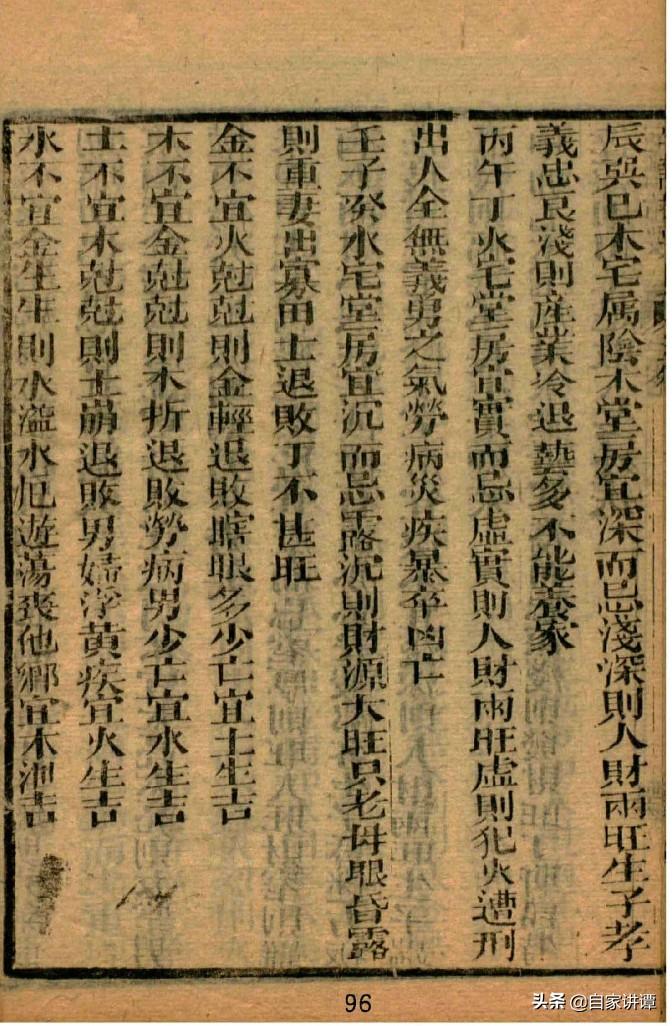 辰巽巳木宅属陰木堂房宜深而忌淺深則人財兩旺生子孝
義忠良淺則産業冷退藝多不能養家
丙午丁火宅堂房宜實而忌虛實則人財兩旺虛則犯火遭刑
出人全無義勇之氣勞病災疾暴卒凶亡
壬子癸水宅堂房宜沉而忌露沉則財源大旺只老母眼昏露
則重妻出寡田土退敗丁不甚旺
金不宜火尅尅則金輕退敗瞎眼多少亡宜土生吉
木不宜金尅尅則木折退敗勞病男少亡宜水生吉
土不宜木尅尅則土崩退敗男婦浮黄疾宜火生吉
水不宜金生生則水溢水厄遊蕩喪他鄉宜木洩吉
96
头条 @自家讲谭